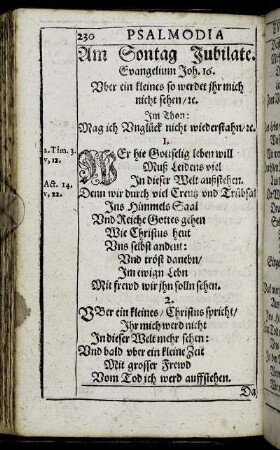 230 PSALMODIA
Am Sontag Jubilate.
Evangelium Joh. 16.
Vber ein kleines so werdet jhr mich
nicht sehen / ꝛc.
Im Thon:
Mag ich Vnglück nicht wiederstahn / ꝛc.
1.
2. Tim. 3.
v, 12.
WEr hie Gottselig leben will
Muß Leidens viel
In dieser Welt außstehen.
Act. 14.
v, 22.
Denn wir durch viel Creutz vnd Trübsal
Ins Himmels Saal
Vnd Reiche Gottes gehen
Wie Christus heut
Vns selbst andeut:
Vnd tröst danebn /
Im ewign Lebn
Mit frewd wir jhn solln sehen.
2.
VBer ein kleines / Christus spricht /
Ihr mich werd nicht
In dieser Welt mehr sehen:
Vnd bald vber ein kleine Zeit
Mit grosser Frewd
Vom Tod ich werd auffstehen.
Da